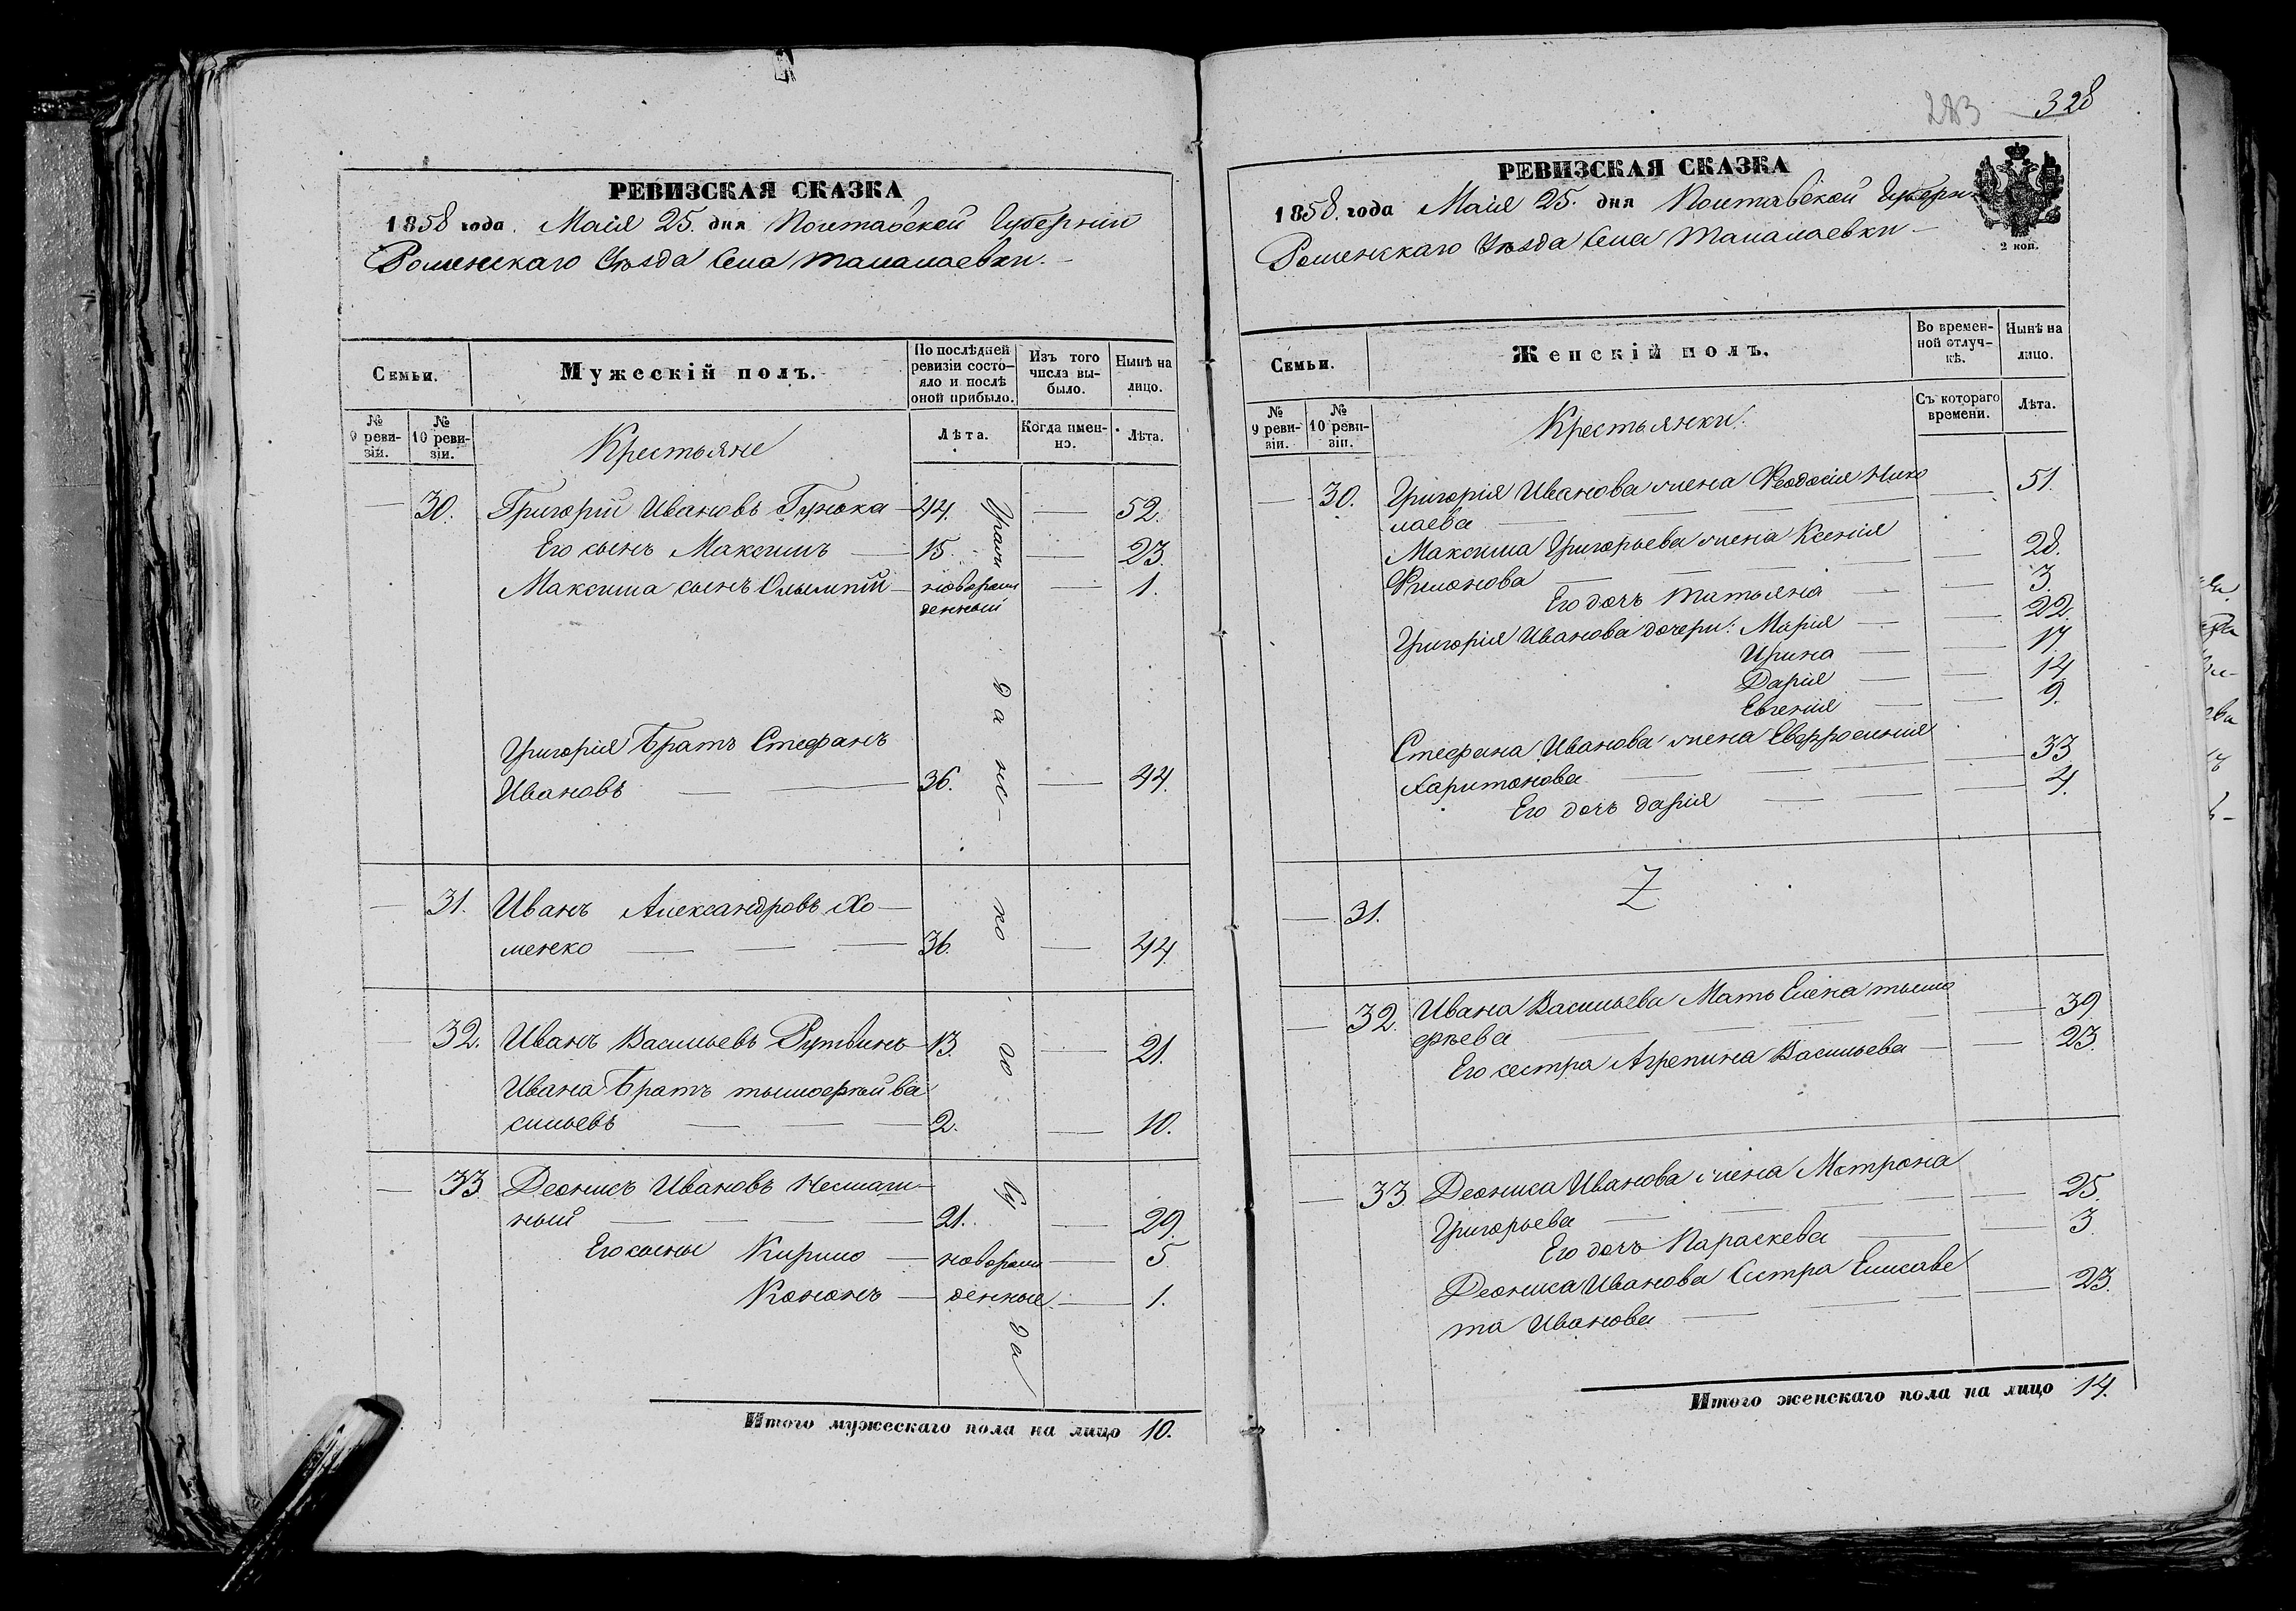 РЕВИЗСКАЯ СКАЗКА
1858 года. Маія 25. дня Полтавской Губерніи
Роменскаго Уѣзда Села Талалаевки.
Семьи.
Мужескій полъ.
По послѣдней ревизіи состояло и послѣ оной прибыло.
Изъ того числа выбыло.
Нынѣ на лицо.
№ 9 ревизіи.
№ 10 ревизіи.
Крестьяне
Лѣта.
Когда именно.
Лѣта.
— 30. Григорій Ивановъ Гунька — 44. — 52.
Его сынъ Максимъ — 15. — 23.
Максима сынъ Олымпій — новорож — 1.
денный
Григорія Братъ Стефанъ
Ивановъ — — 36. — 44.
— 31. Иванъ Александровъ Хо—
менко — — — 36. — 44.
— 32. Иванъ Васильевъ Рутвинъ — 13. — 21.
Ивана Братъ тымофѣй Ва
сильевъ — — — 2. — 10.
— 33. Деонисъ Ивановъ Несмаш—
ный — — — — 21. — 29.
Его сыны Кирило — новорож — 5.
Кононъ — денные. — 1.
Граж
да
нс-
ко
го
Итого мужескаго пола на лицо 10.
328
РЕВИЗСКАЯ СКАЗКА
1858. года Маія 25. дня Полтавской Губерн.
Роменскаго Уѣзда Села Талалаевки —
2 коп.
Семьи.
Женскій полъ.
Во временной отлучкѣ.
Нынѣ на лицо.
№ 9 ревизіи.
№ 10 ревизіи.
Крестьянки.
Съ котораго времени.
Лѣта.
— 30. Григорія Иванова жена Феодосія Нико — 51.
лаева — — —
Максима Григорьева жена Ксенія
Филонова — — — — 28.
Его дочь Татьяна — — 3.
Григорія Иванова дочери: Марія — — 22.
Ирина — — 17.
Дарія — — 14.
Евгенія — — 9.
Стефана Иванова жена Евфросинія
Харитонова — — — — 33
Его дочь Дарія — — — 4.
— 31. Z
— 32. Ивана Васильева Мать Елена тымо
фѣева — — — — 39
Его сестра Агрепина Васильева — — 23.
— 33. Деониса Иванова жена Мотрона
Григорьева — — — — 25.
Его дочь Параскева — — 3
Деониса Иванова Сестра Елисаве
та Иванова — — — 23.
Итого женскаго пола на лицо 14.